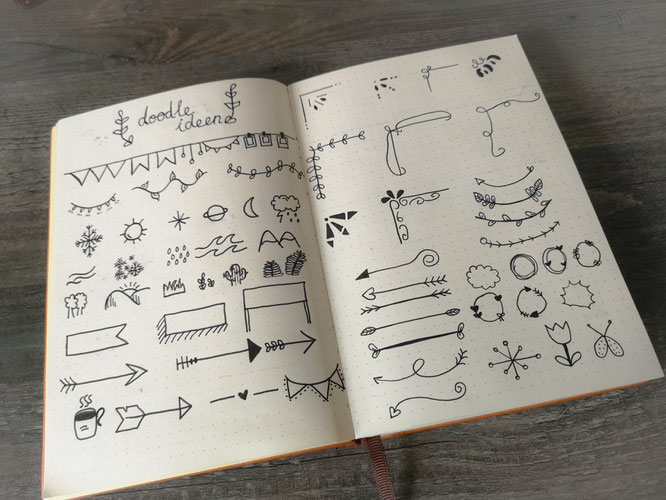 doodle
ideen